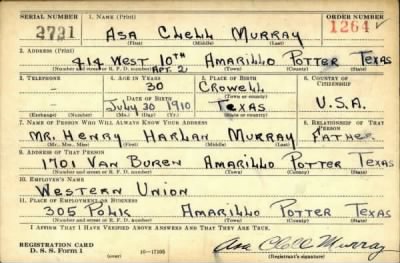 SERIAL NUMBER 1. NAME (Print) ORDER NUMBER
2721 ASA CLELL MURRAY 1264
(First) (Middle) (Last)
2. ADDRESS (Print)
414 WEST 10TH APT. 2 AMARILLO POTTER TEXAS
(Number and street or R. F. D. number) (Town) (County) (State)
3. TELEPHONE 4. AGE IN YEARS 5. PLACE OF BIRTH 6. COUNTRY OF CITIZENSHIP
30 CROWELL
(Town or county)
DATE OF BIRTH
JULY 30 1910 TEXAS U.S.A.
(Exchange) (Number) (Mo.) (Day) (Yr.) (State or country)
7. NAME OF PERSON WHO WILL ALWAYS KNOW YOUR ADDRESS 8. RELATIONSHIP OF THAT PERSON
MR. HENRY HARLAN MURRAY FATHER
(Mr., Mrs., Miss) (First) (Middle) (Last)
9. ADDRESS OF THAT PERSON
1701 VAN BUREN AMARILLO POTTER TEXAS
(Number and street or R. F. D. number) (Town) (County) (State)
10. EMPLOYER'S NAME
WESTERN UNION
11. PLACE OF EMPLOYMENT OR BUSINESS
305 POLK AMARILLO POTTER TEXAS
(Number and street or R. F. D. number) (Town) (County) (State)
I AFFIRM THAT I HAVE VERIFIED ABOVE ANSWERS AND THAT THEY ARE TRUE.
REGISTRATION CARD
D. S. S. FORM 1 Asa Clell Murray
(Registrant's signature)